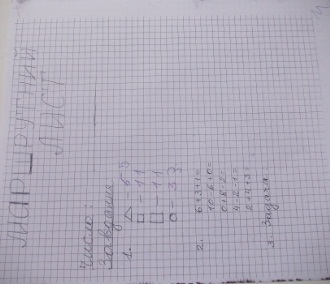 МАРШРУТНИЙ
ЛИСТ
Число:
Завдання
1. △ -
□ - 11
□ - 11
○ - 33
2. 6+3+1=
10-6+0=
0+6+2=
4-2-1=
2+4+3=
3. Задача.